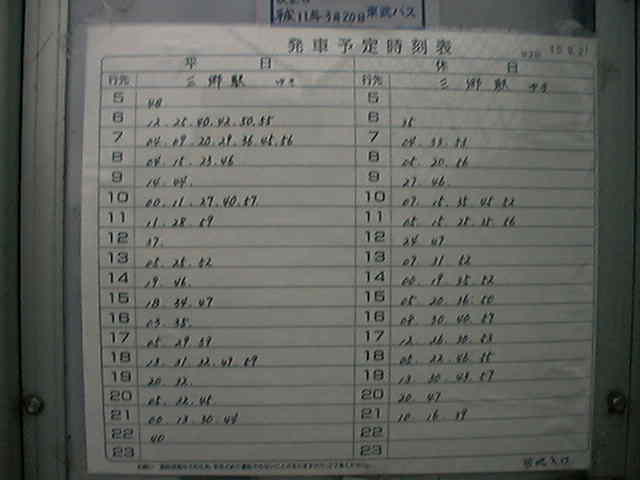 平成11年3月20日 東武バス
発車予定時刻表
平日 休日
行先 三郷駅 行先 三郷駅
5 48 5
6 12.25.40.42.50.55 6 35
7 04.09.20.29.36.45.56 7 04.33.53
8 04.15.23.46 8 05.20.56
9 14.44. 9 27.46.
10 00.11.27.40.57. 10 07.15.35.45.52
11 11.28.59 11 05.15.25.35.56
12 37. 12 24.47
13 05.25.52 13 07.31.52
14 19.46. 14 00.19.35.52
15 18.34.47 15 05.20.36.50
16 03.35. 16 08.30.40.57
17 05.29.39 17 12.26.30.53
18 13.31.22.47.59 18 05.22.46.55
19 20.32. 19 13.30.43.57
20 05.22.45 20 20.47
21 00.13.30.44 21 10.16.39
22 40 22
23 23